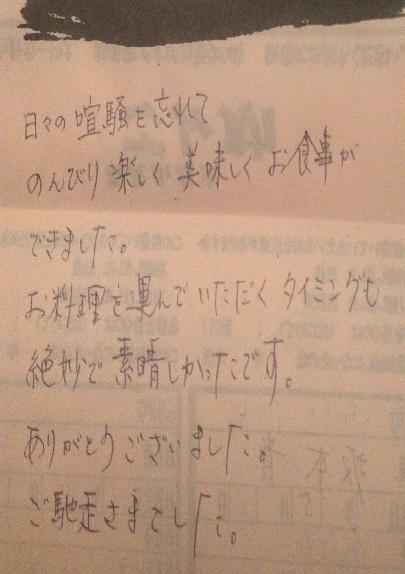 日々の喧騒を忘れて
のんびり楽しく美味しくお食事が
できました。
お料理を運んでいただくタイミングも
絶妙で素晴しかったです。
ありがとうございました。
ご馳走さまでした。